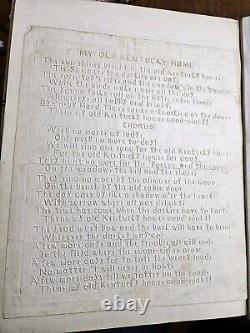 MY OLD KENTUCKY HOME
The sun shines bright in the old Kentucky home
'Tis summer, the darkies are gay,
The corn top's ripe and the meadow's in the bloom
While the birds make music all the day.
The young folks roll on the little cabin floor
All merry, all happy and bright;
By-n-by Hard Times comes a-knocking at the door
Then my old Kentucky home good-night!
CHORUS:
Weep no more my lady,
Oh! weep no more to-day
We will sing one song for the old Kentucky home
For the old Kentucky home far away.
They hunt no more for the Possum and the coon
On the meadow, the hill and the shore,
They sing no more by the glimmer of the moon,
On the bench by the old cabin door.
The day goes by like a shadow o'er the heart
With sorrow where all was delight,
The time has come when the darkies have to part
Then my old Kentucky home good-night!
The head must bow and the back will have to bend,
Wherever the darkey may go;
A few more days and the trouble all will end
In the field where the sugar-canes grow.
A few more days for to tote the weary load,
No matter 't will never be light;
A few more days till we totter on the road,
Then my old Kentucky home good-night!